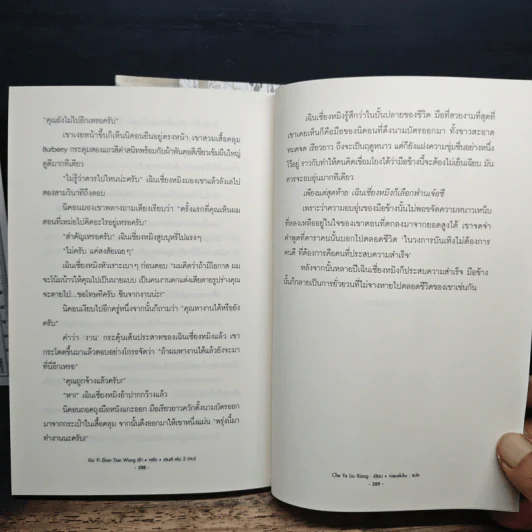 "คุณยังไม่ไปอีกเหรอครับ"
เขาเงยหน้าขึ้นก็เห็นนิคอนยืนอยู่ตรงหน้า เขาสวมเสื้อคลุม
Burberry กระดุมสองแถวสีดำสนิทพร้อมกับผ้าพันคอสีเขียวเข้มผืนใหญ่
ดูดีมากทีเดียว
"ไม่รู้ว่าควรไปไหนน่ะครับ" เฉินเชี่ยงหมิงมองเขาแล้วลังเลไป
สองสามวินาทีถึงตอบ
นิคอนมองเขาพลางถามเสียงเรียบว่า "ครั้งแรกที่คุณเห็นผม
ตอนที่เหม่อไปคิดอะไรอยู่เหรอครับ"
"สำคัญเหรอครับ" เฉินเชี่ยงหมิงสูบบุหรี่ไปแรงๆ
"ไม่ครับ แค่สงสัยเฉยๆ"
เฉินเชี่ยงหมิงหัวเราะเบาๆ ก่อนตอบ "ผมคิดว่าถ้ามีโอกาส ผม
จะโน้มน้าวให้คุณไปเป็นนายแบบ เป็นคนงานตกแต่งเสียดายรูปร่างคุณ
จะตายไป...ขอโทษทีครับ ชินจากงานน่ะ!"
นิคอนเงียบไปอีกครู่หนึ่งจากนั้นก็ถามว่า "คุณหางานได้หรือยัง
ครับ"
คำว่า 'งาน' กระตุ้นเส้นประสาทของเฉินเชี่ยงหมิงแล้ว เขา
กระโดดขึ้นมาแล้วตอบอย่างโกรธจัดว่า "ถ้าผมหางานได้แล้วยังจะมา
ที่นี่อีกเหรอ"
"คุณถูกจ้างแล้วครับ!"
"หา!" เฉินเชี่ยงหมิงอ้าปากกว้างแล้ว
นิคอนถอดถุงมือหนังแกะออก มือเรียวยาวควักดึงนามบัตรออก
มาจากกระเป๋าในเสื้อคลุม จากนั้นดึงออกมาให้เขาหนึ่งแผ่น "พรุ่งนี้มา
ทำงานนะครับ!"
Xiu Yi Zhan Tian Wang
- 388 -
เฉินเชี่ยงหมิงรู้สึกว่าในบั้นปลายของชีวิต มือที่สวยงามที่สุดที่
เขาเคยเห็นก็คือมือของนิคอนที่ดึงนามบัตรออกมา ทั้งขาวสะอาด
หมดจด เรียวยาว ถึงจะเป็นฤดูหนาว แต่ก็ยังแฝงความชุ่มชื่นอย่างหนึ่ง
ไว้อยู่ ราวกับทำให้คนคิดเชื่อมโยงได้ว่ามือข้างนี้จะต้องไม่เย็นเฉียบ มัน
ควรจะอบอุ่นมากทีเดียว
เพียงแต่สุดท้าย เฉินเชี่ยงหมิงก็เลือกฟานเจ๋อซี
เพราะว่าความอบอุ่นของมือข้างนั้นไม่พอขจัดความหนาวเหน็บ
ที่หลงเหลืออยู่ในใจของเขาตอนที่ตกลงมาจากยอดสูงได้ เขาจดจำ
คำพูดที่ดาราคนนั้นบอกไปตลอดชีวิต 'ในวงการบันเทิงไม่ต้องการ
คนดี ที่ต้องการคือคนที่ประสบความสำเร็จ'
หลังจากนั้นหลายปีเฉินเชี่ยงหมิงก็ประสบความสำเร็จ มือข้าง
นั้นก็กลายเป็นการยั่วยวนที่ไม่จางหายไปตลอดชีวิตของเขาเช่นกัน
Che Ye Liu Xiang : เขียน
- 389 -